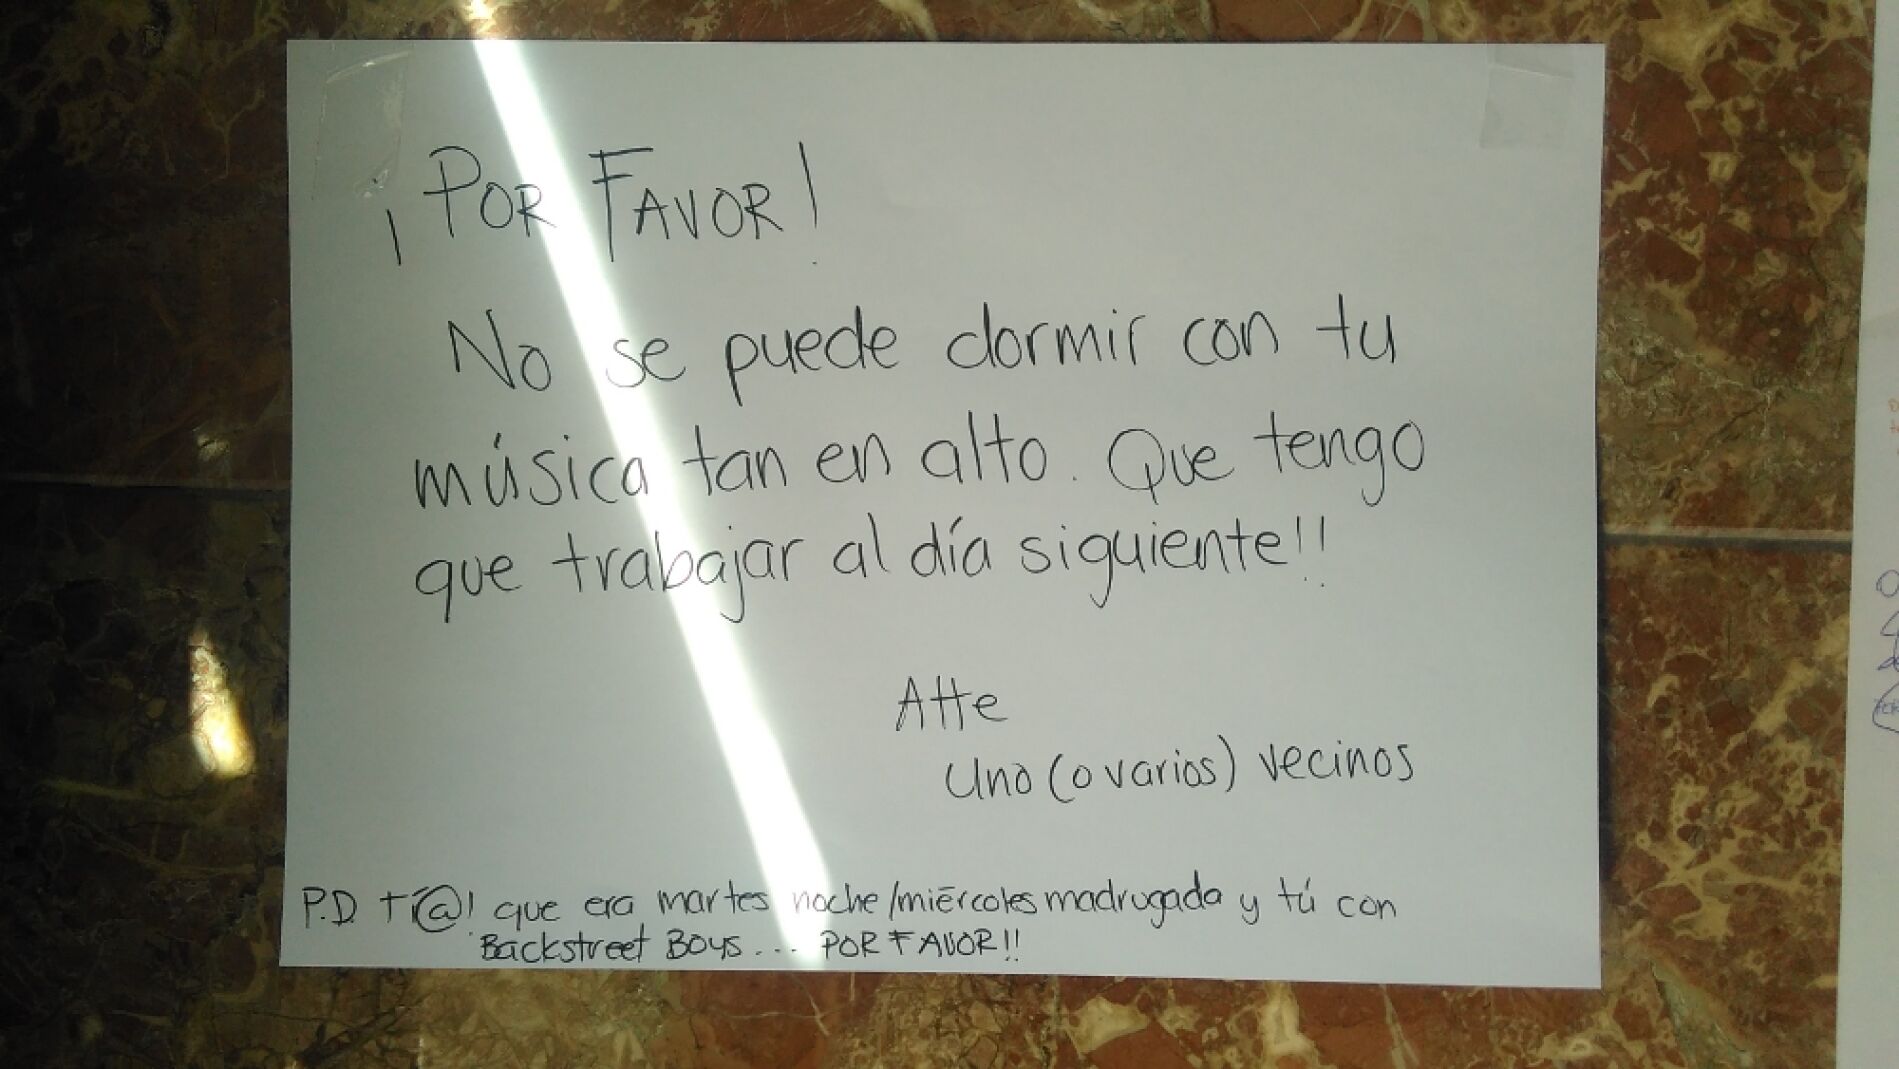 ¡POR FAVOR!
No se puede dormir con tu
música tan en alto. Que tengo
que trabajar al día siguiente!!
Atte
Uno (o varios) vecinos
P.D T@! que era martes noche/miércoles madrugada y tú con
Backstreet Boys... POR FAVOR!!